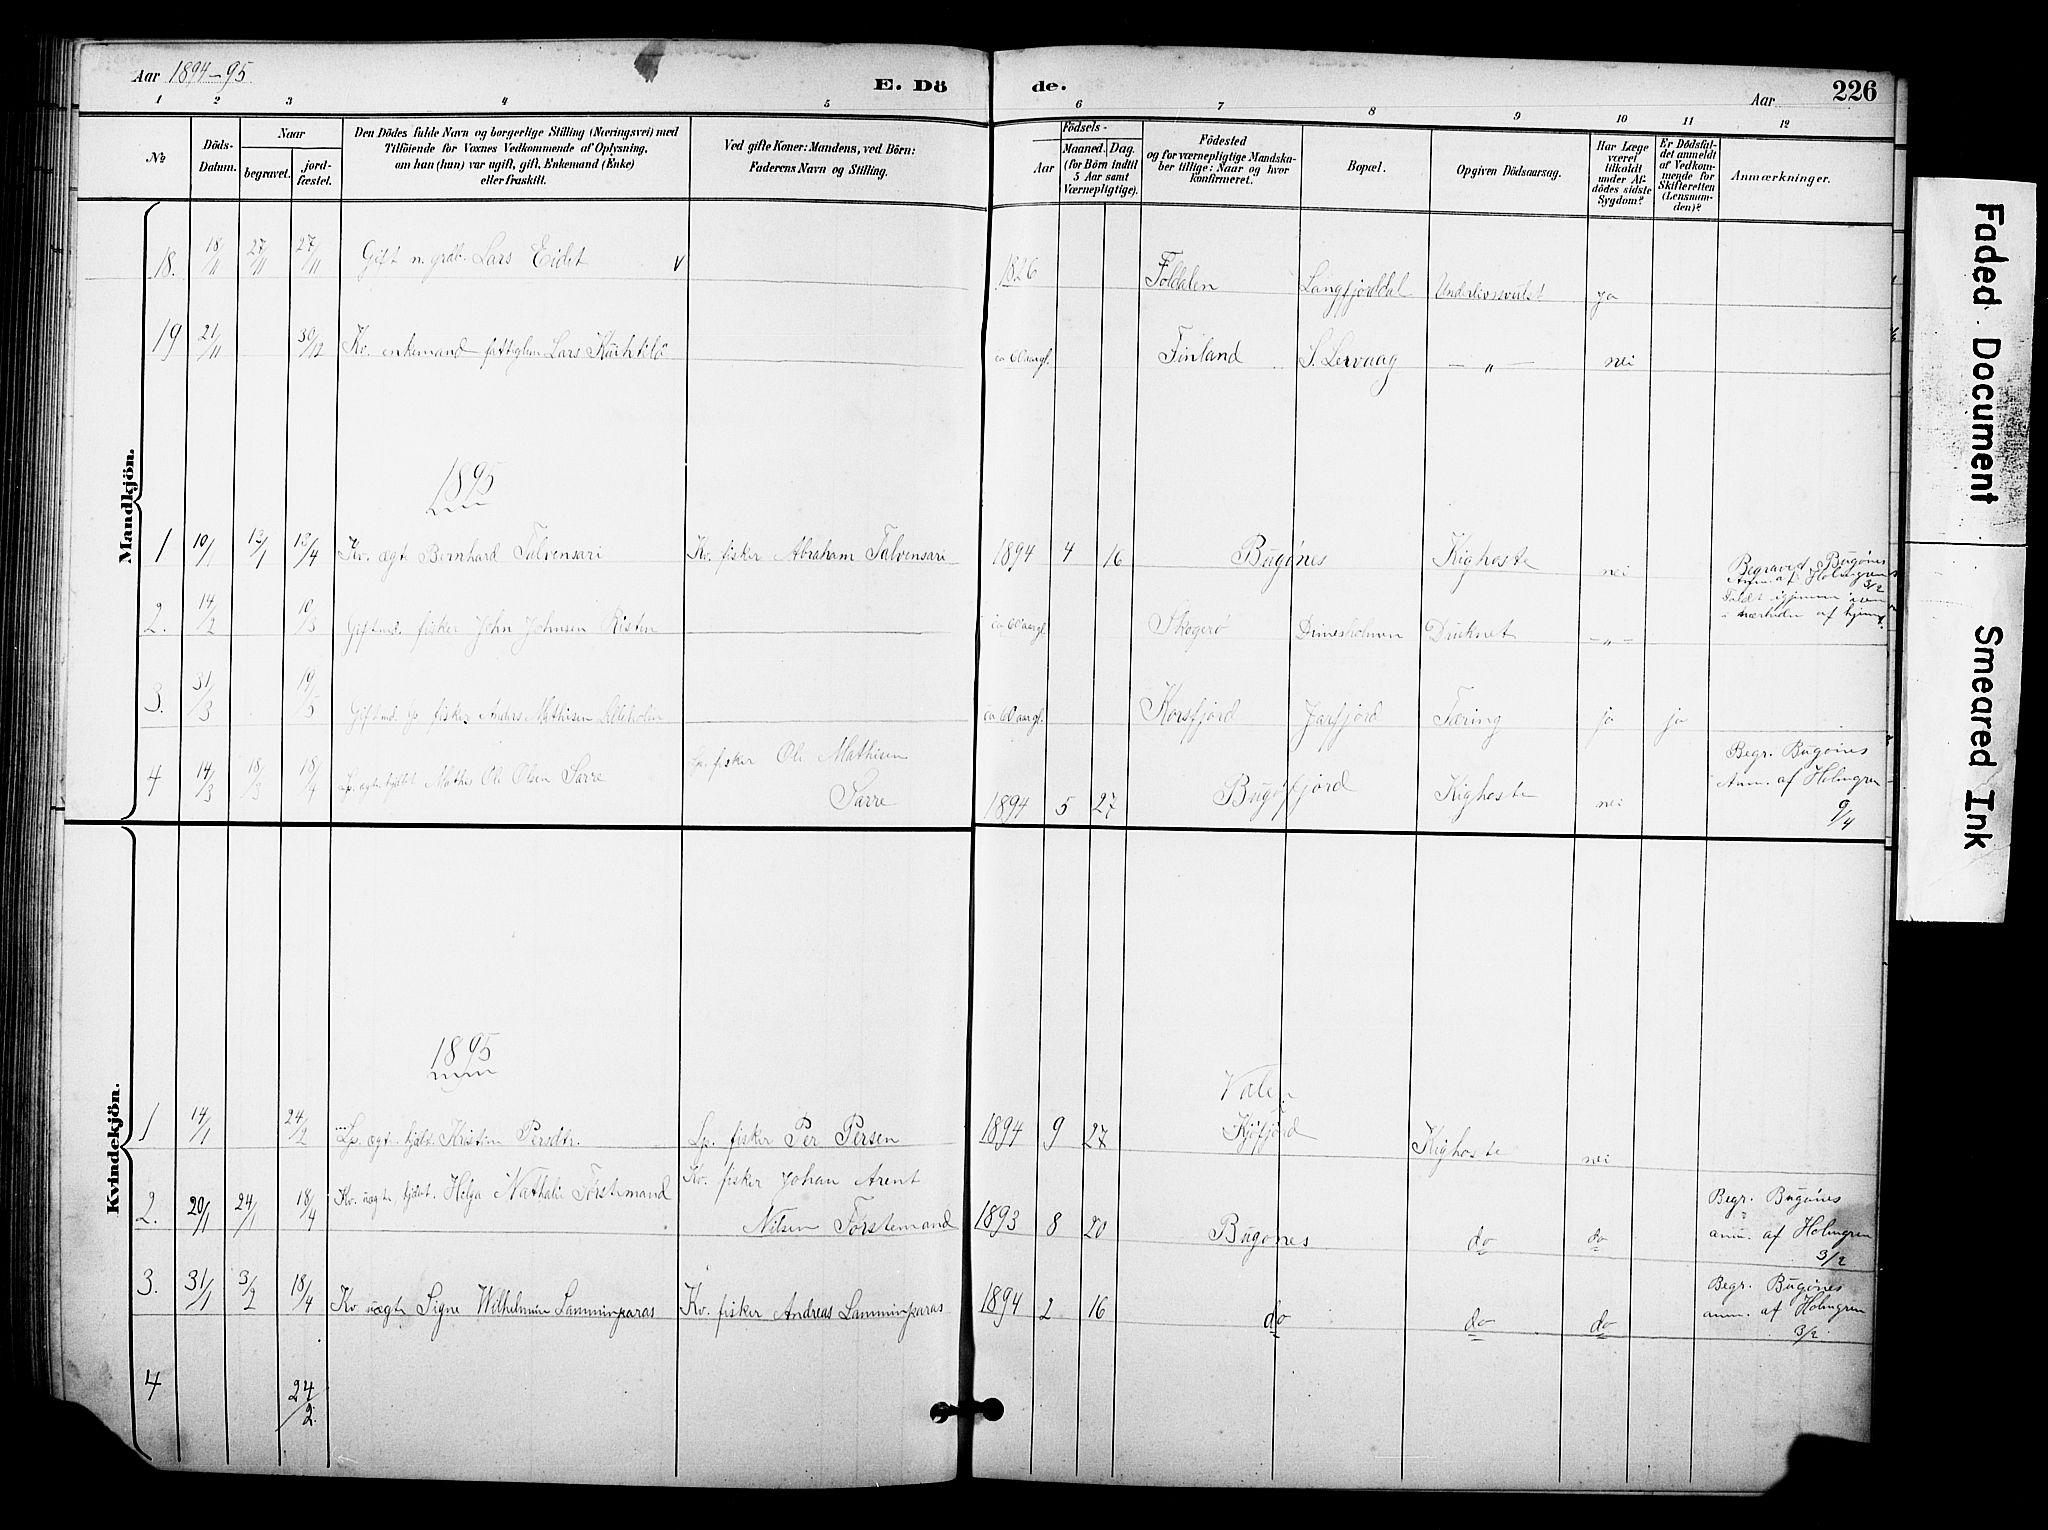 Aar 1894–95
E. Dö
de.
Aar
226
1 2 3 4 5 6 7 8 9 10 11 12
№
Döds-
Datum.
Naar
begravet.
jord-
fæstet.
Den Dödes fulde Navn og borgerlige Stilling (Næringsvei) med
Tilföiende for Voxnes Vedkommende af Oplysning,
om han (hun) var ugift, gift, Enkemand (Enke)
eller fraskilt.
Ved gifte Koner: Mandens, ved Börn:
Faderens Navn og Stilling.
Födsels-
Aar
Maaned. Dag.
(for Börn indtil
5 Aar samt
Værnepligtige).
Födested
og for værnepligtige Mandska-
ber tillige: Naar og hvor
konfirmeret.
Bopæl.
Opgiven Dödsaarsag.
Har Læge
været
tilkaldt
under Af-
dödes sidste
Sygdom?
Er Dödsfal-
det anmeldt
af Vedkom-
mende for
Skifteretten
(Lensman-
den)?
Anmærkninger.
Mandkjön.
18. 18/11 27/11 27/11 Gift n. grdb. Lars Eidet v 1826 Foldalen Langfjorddal Underlivssvulst ja
19 21/11 30/12 Kv. enkemand fattiglem Lars ca 60 aar gl. Finland S. Lervaag – „ – nei
1895
1 10/1 13/1 13/4 Kv. ægt. Bernhard Talvensari Kv. fisker Abraham Talvensari 1894 4 16 Bugønes Kighoste nei Begravet Bugønes
Anm. af Holmgren 3/2
2. 14/2 10/3 Giftmd. fisker John Johnsen Risten ca 60 aar gl. Skogerø Druknet – „ –
3. 31/3 19/5 Giftmd. fisker Anders Mathisen ca 60 aar gl. Korsfjord Jarfjord Tæring ja ja
4 14/3 18/3 18/4 Lp. ægte hjdøbt Mathis Ole Olsen Sarre Lp. fisker Ole Mathisen
Sarre 1894 5 27 Bugøfjord Kighoste nei Begr. Bugønes
Anm. af Holmgren
9/4
Kvindekjön.
1895
1 14/1 24/2 Lp. ægt. hjdt. Kristine Persdtr. Lp. fisker Per Persen 1894 9 27 Valen
Kjøfjord Kighoste nei
2. 20/1 24/1 18/4 Kv. uægte hjdbt. Helga Nathalie Førstemand Kv. fisker Johan Arent
Nilsen Førstemand 1893 8 20 Bugønes do do Begr. Bugønes
anm. af Holmgren
3/2
3. 31/1 3/2 18/4 Kv uægte Signe Wilhelmine Lamminparas Kv. fisker Andreas Lamminparas 1894 2 16 do do do Begr. Bugønes
anm. af Holmgren
3/2.
4 24/2.
Faded Document
Smeared Ink